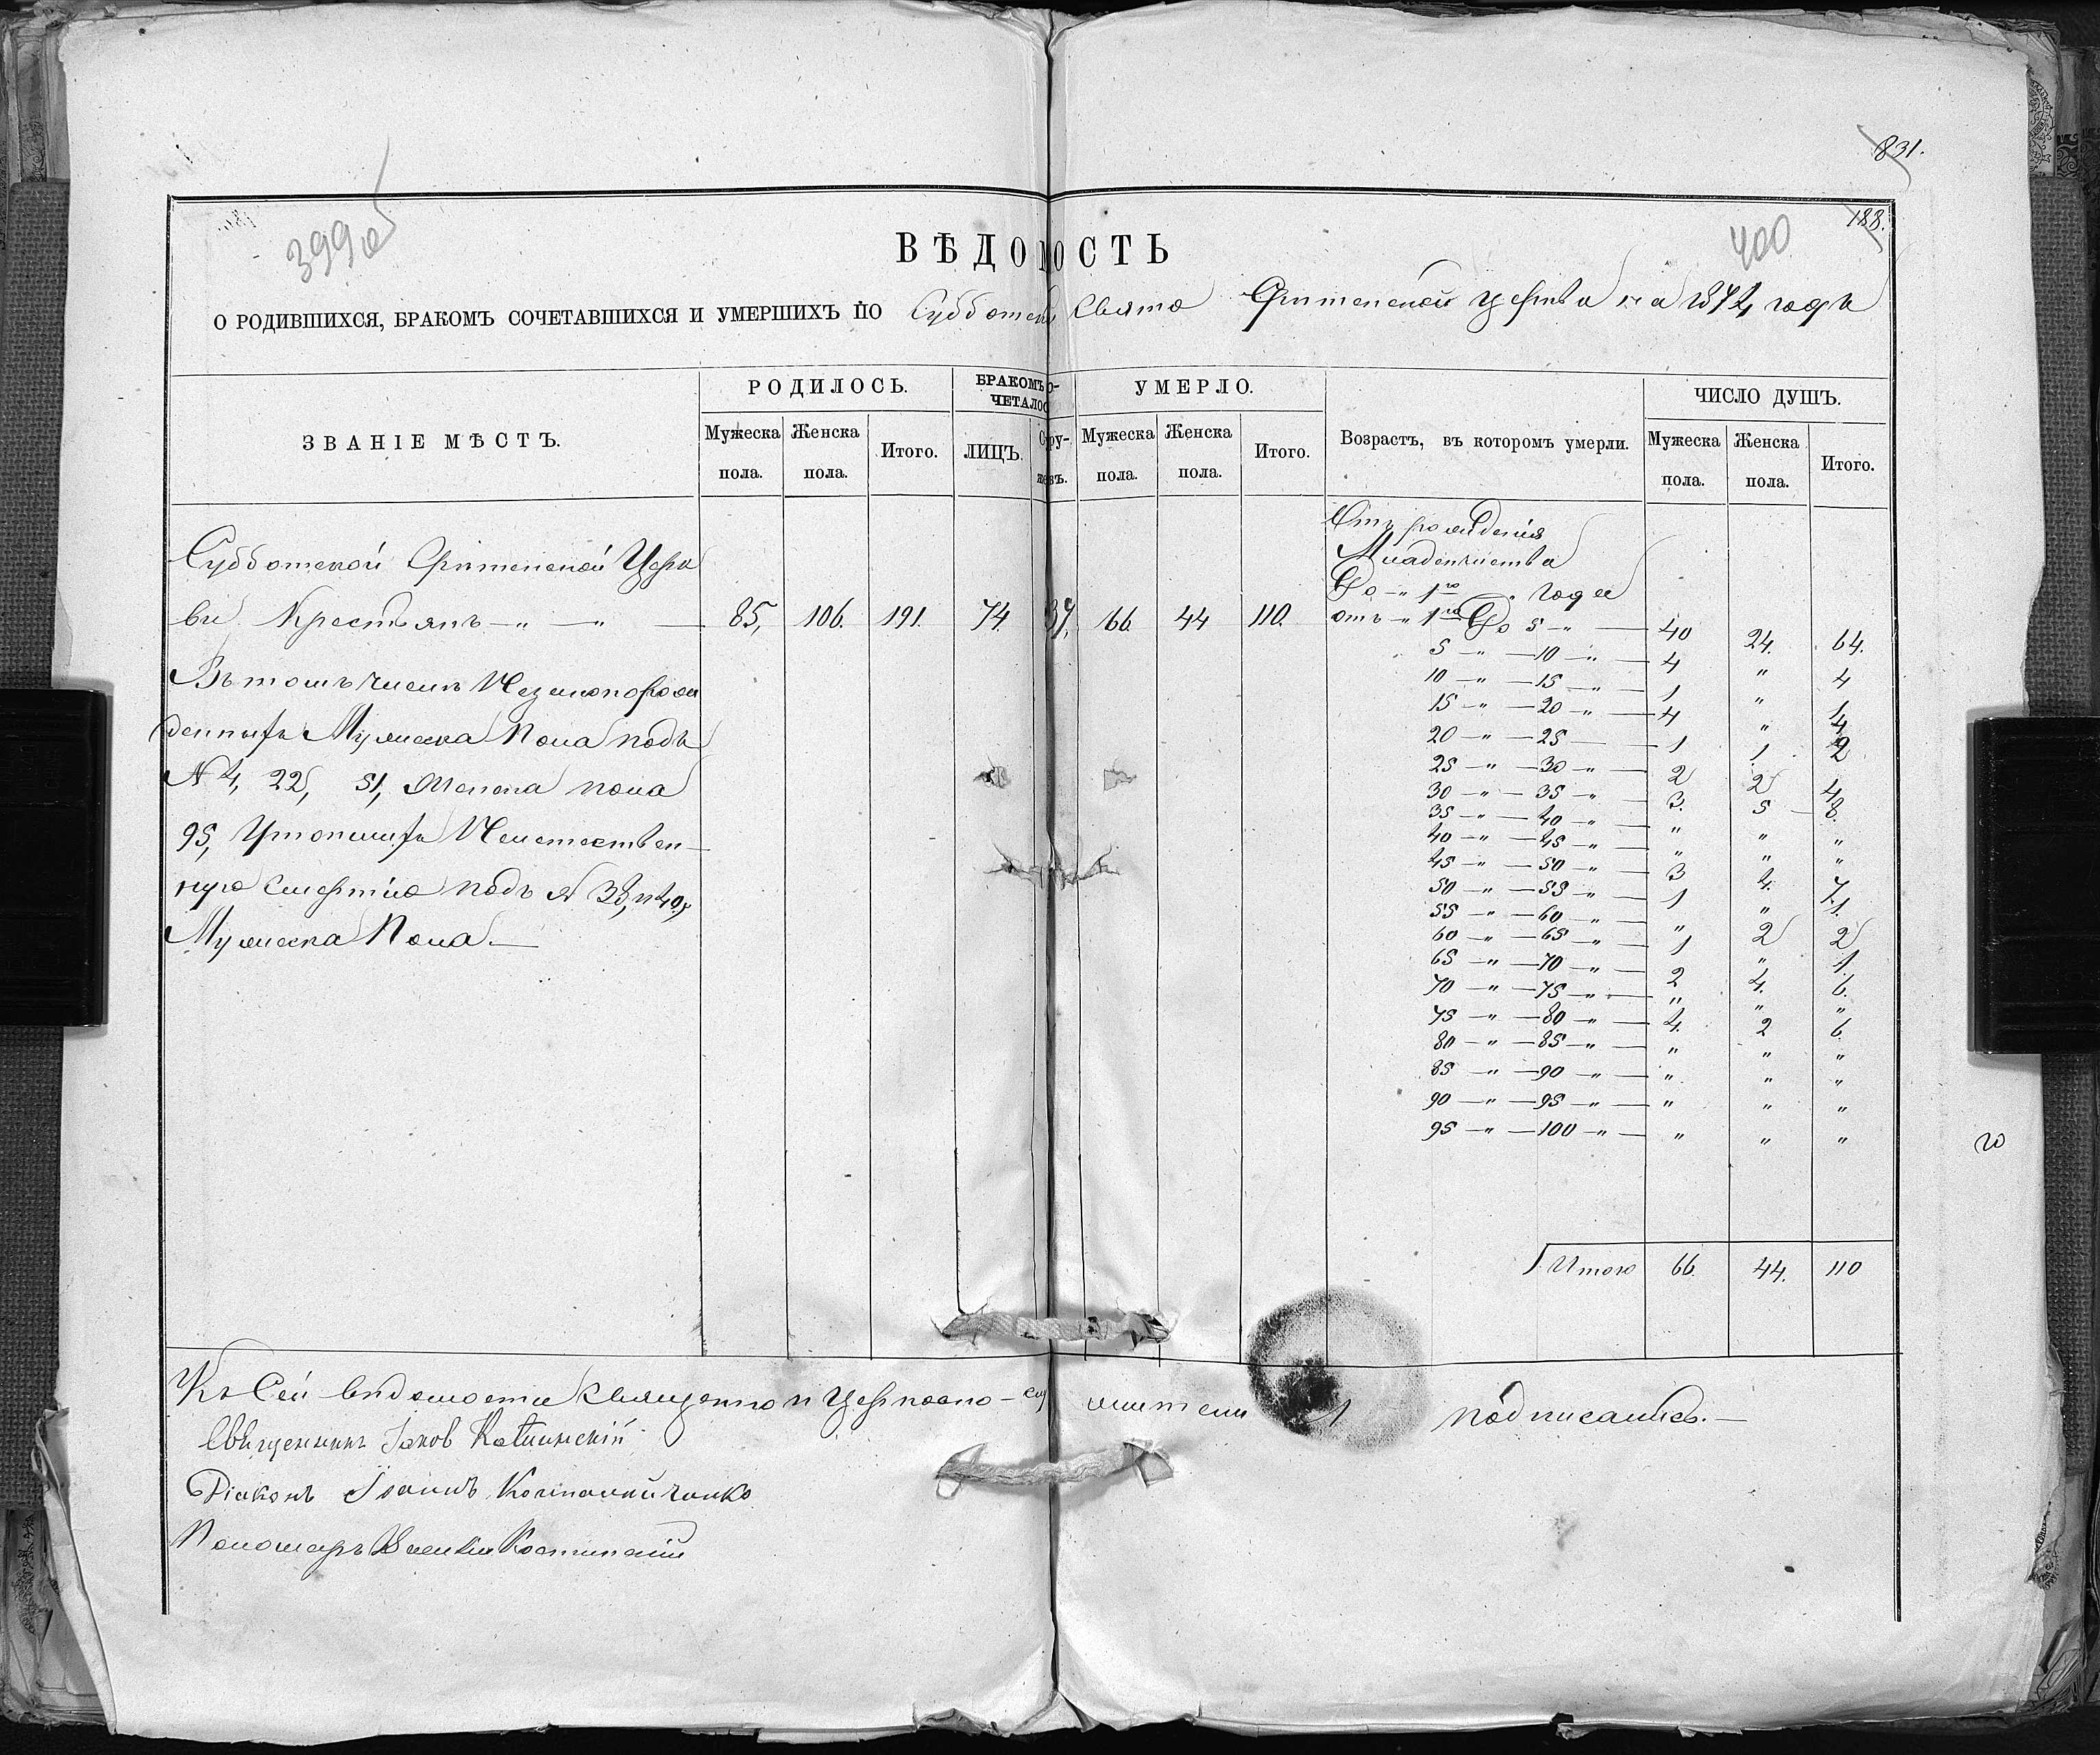 831.
188.
399об
400
ВѢДОМОСТЬ
О РОДИВШИХСЯ, БРАКОМЪ СОЧЕТАВШИХСЯ И УМЕРШИХЪ ПО Субботской Свято Срѣтенской церкви на 1874 годъ
ЗВАНІЕ МѢСТЪ.
РОДИЛОСЬ.
Мужеска пола.
Женска пола.
Итого.
БРАКОМЪ СО-
ЧЕТАЛОСЬ
ЛИЦЪ.
УМЕРЛО.
Мужеска пола.
Женска пола.
Итого.
Возрастъ, въ которомъ умерли.
ЧИСЛО ДУШЪ.
Мужеска пола.
Женска пола.
Итого.
Субботской Срѣтенской Церк
ви Крестьянъ — " — " — 85, 106. 191. 74. 37, 66. 44 110.
Въ томъ числѣ Незаконорож
денныхъ Мужеска Пола подъ
№ 4, 22, 51, Женска пола
95, Утопшихъ Неестествен-
ную смертію подъ № 38, и 40,
Мужеска Пола. —
Отъ рожденія
Младенчества
До - " 1го года
отъ " 1го До 5 - " — 40 24. 64.
5 — " — 10 — " — 4 " 4
10 — " — 15 — " — 1 " 1
15 — " — 20 — " — 4 " 4
20 — " — 25 — 1 1 2
25 — " — 30 — " — 2 2 4
30 — " — 35 — " — 3. 5 8.
35 — " — 40 — " — " " "
40 — " — 45 — " — " " "
45 — " — 50 — " — 3 4. 7
50 — " — 55 — " — 1 " 1.
55 — " — 60 — " — " 2 2
60 — " — 65 — " — 1 " 1.
65 — " — 70 — " — 2 4. 6.
70 — " — 75 — " — " " "
75 — " — 80 — " — 4. 2 6
80 — " — 85 — " — " " "
85 — " — 90 — " — " " "
90 — " — 95 — " — " " "
95 — " — 100 — " — " " "
Итого 66. 44. 110
Къ Сей вѣдомости Священно и Церковно-служители подписались. —
Священникъ Іаковъ
Діаконъ Іоаннъ
Пономарь